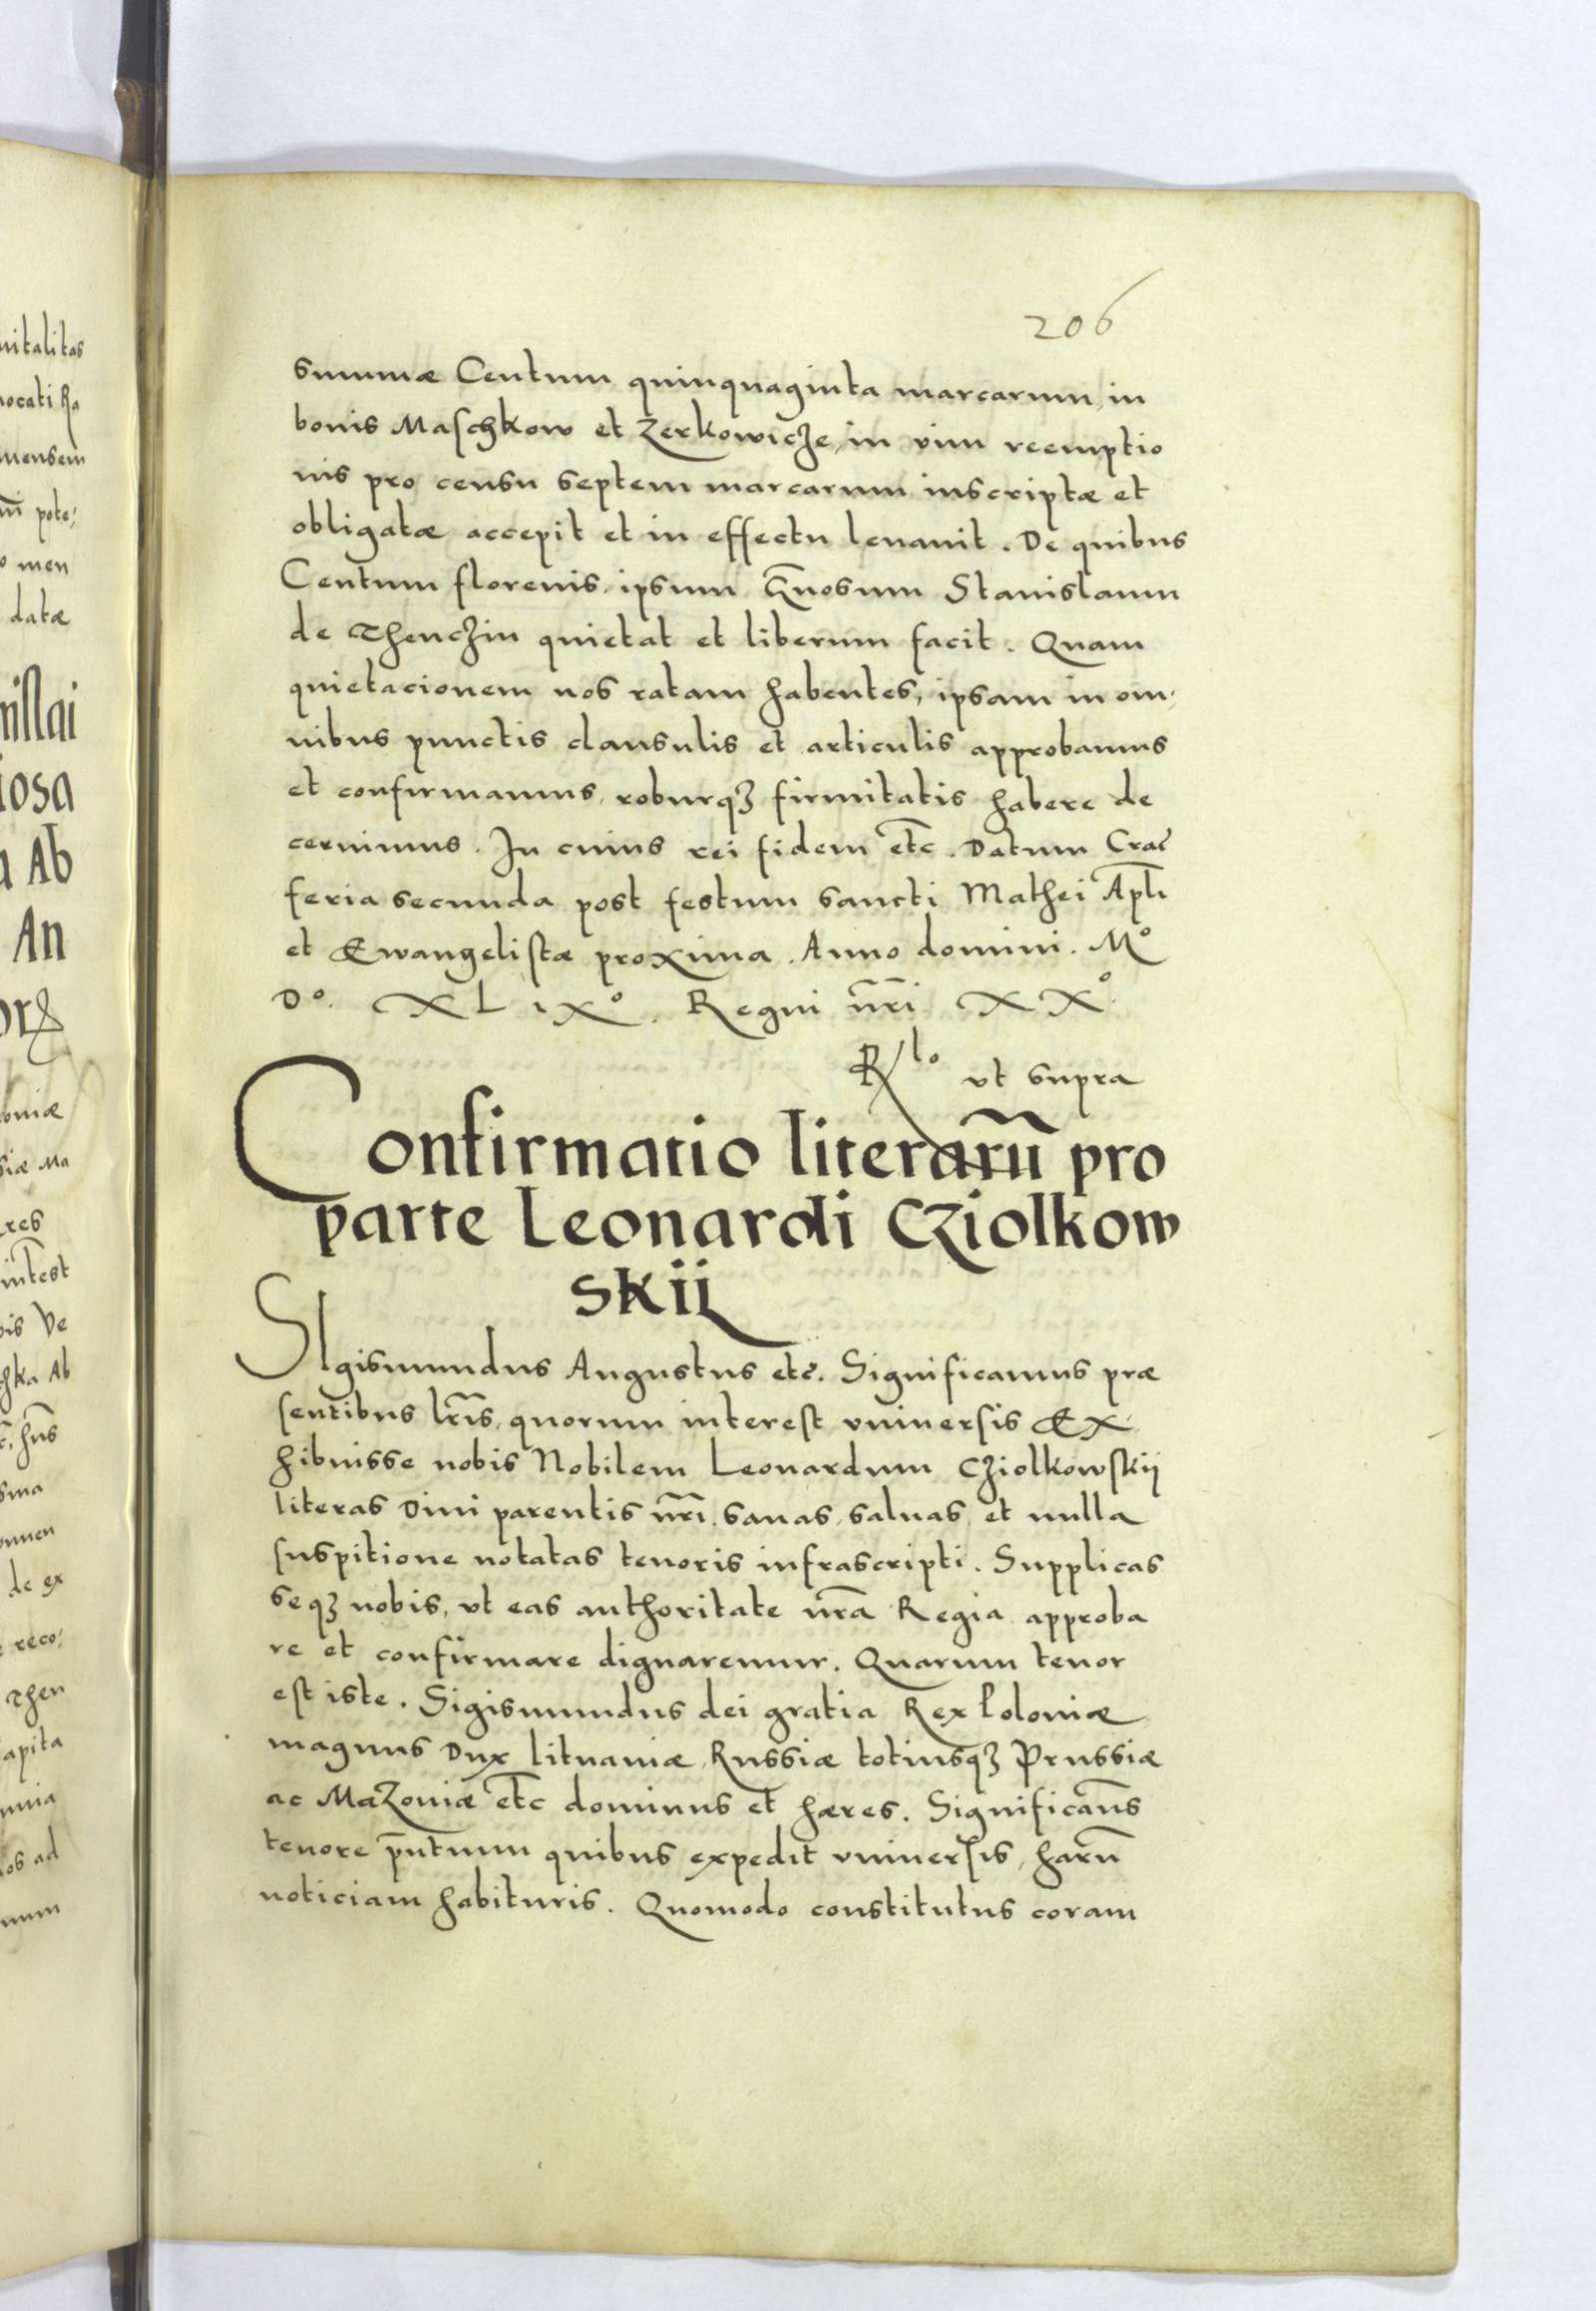 206
summæ Centum quinquaginta marcarum, in
bonis Maschkow et Zerkowicze, in vim reemptio
nis pro censu septem marcarum inscriptæ et
obligatæ accepit et in effectu leuauit. De quibus
Centum florenis, ipsum Gn̄osum Stanislaum
de Thenczin quietat et liberum facit. Quam
quietacionem nos ratam habentes, ipsam in om,
nibus punctis clausulis et articulis approbamus
et confirmamus, roburqȝ firmitatis habere de
cernimus. In cuius rei fidem etc̄. Datum Crac̄
feria secunda post festum sancti Mathei Apl̄i
et Ewangelistæ proxima. Anno domini. Mº
Dº. XLIXº. Regni nr̄i XXº.
Rlº vt supra
Confirmatio literarū pro
parte Leonardi Cziolkow
skij
SIgismundus Augustus etc̄. Significamus præ
sentibus lr̄is, quorum interest vniuersis Ex
hibuisse nobis Nobilem Leonardum Cziolkowskij
literas Diui parentis nr̄i, sanas, saluas, et nulla
suspitione notatas tenoris infrascripti. Supplicas
seqȝ nobis, vt eas authoritate nr̄a Regia approba
re et confirmare dignaremur. Quarum tenor
est iste. Sigismundus dei gratia Rex Poloniæ
magnus Dux lituaniæ, Russiæ totiusqȝ Prussiæ
ac Mazouiæ etc̄ dominus et hæres. Significam̄s
tenore pn̄tium quibus expedit vniuersis, harū
noticiam habituris. Quomodo constitutus coram